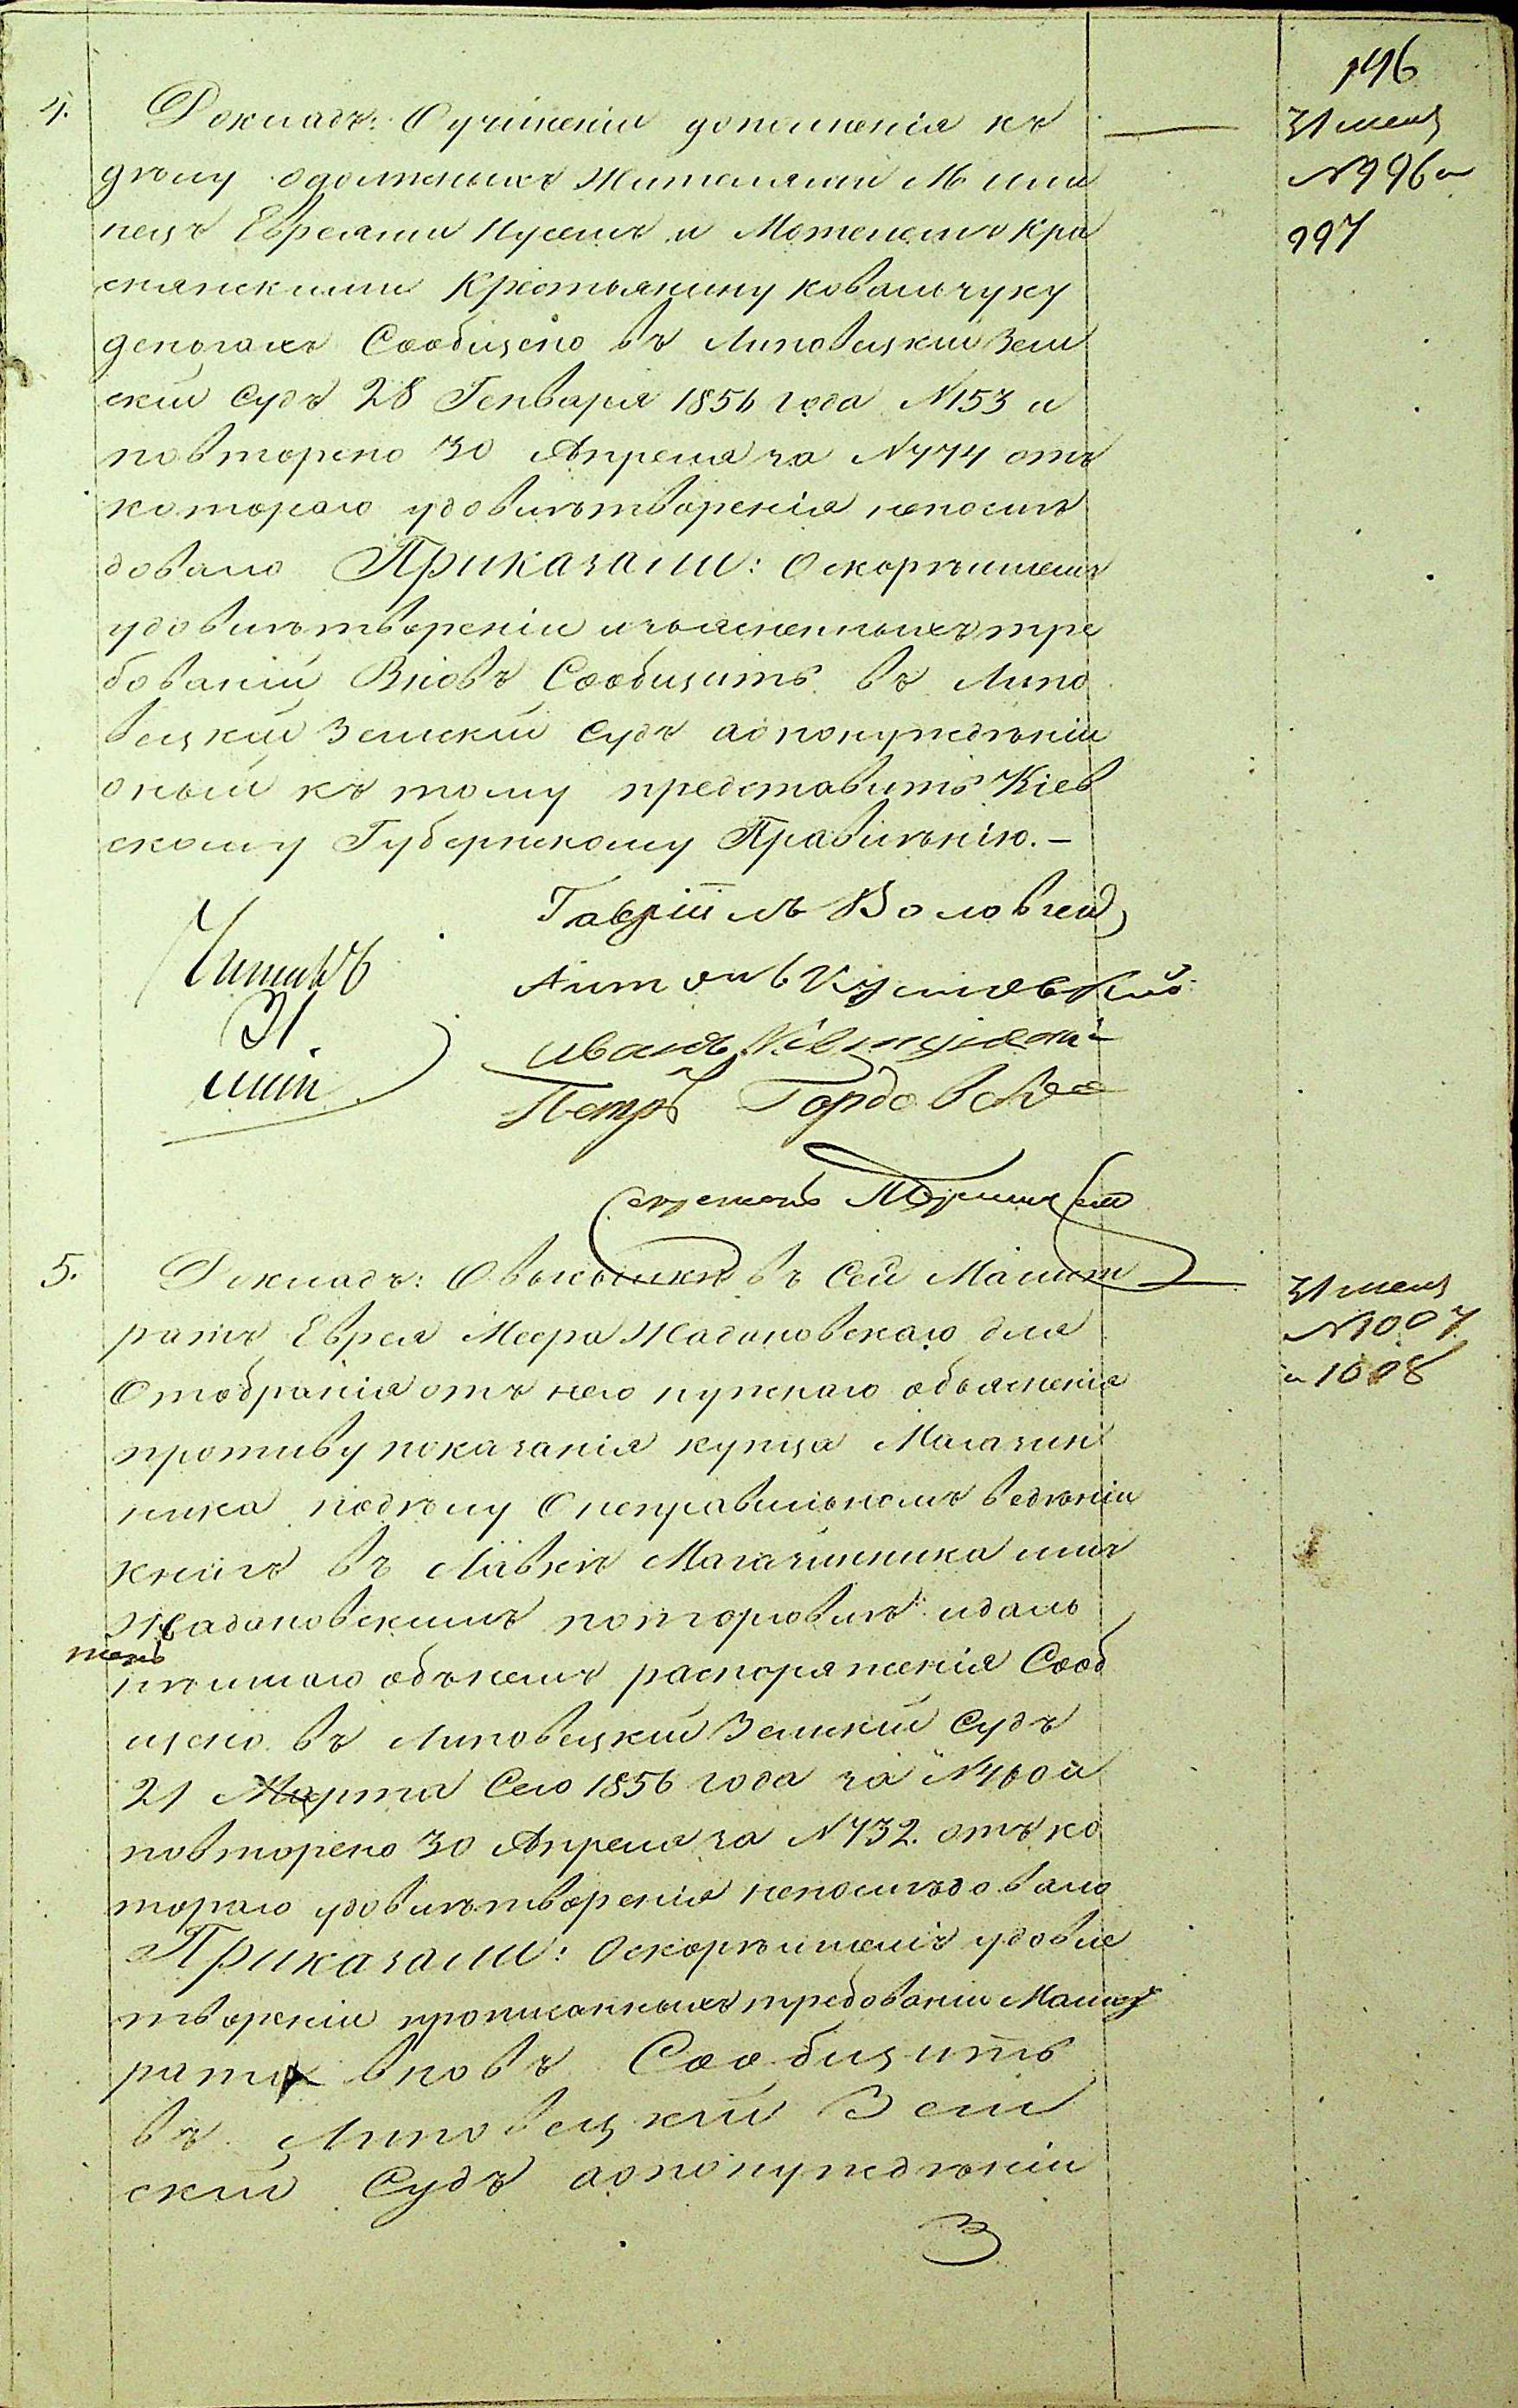 146
4. Докладъ: О учиненіи дополненія къ
31 мая
дѣлу о должныхъ жителями М. Или
№ 996 и
нецъ Евреями Нусемъ и Мотелемъ Кра
997
снянскими Крестьянину Ковальчуку
деньгахъ Сообщено въ Липовецкій Зем
скій Судъ 28 Генваря 1856 года № 153 и
повторено 30 Апреля за № 774 отъ
котораго удовлѣтворенія непослѣ
довало Приказали: О скорѣйшемъ
удовлѣтвореніи изъясненныхъ тре
бованій Вновъ Сообщить въ Липо
вецкій Земскій Судъ а о понужденіи
оный къ тому представить Кіев
скому Губернскому Правленію. –
Гавріилъ
Читалъ
Антонъ
31
Иванъ
мая
Петръ
Секретарь
5. Докладъ: О высылкѣ въ Сей Магист
31 мая
ратъ Еврея Меера Жадановскаго для
№ 1007
Отобранія отъ него нужнаго объясненія
и 1008
противу показанія купца Магазин
ника по дѣлу О неправильномъ веденіи
книгъ въ Лавкѣ Магазинника имъ
Жадановскимъ по торговлѣ и даль
нѣйшаго объ немъ распоряженія Сооб
щено въ Липовецкій Земскій Судъ
21 Марта Сего 1856 года за № 460 и
повторено 30 Апреля за № 732. отъ ко
тораго удовлѣтворенія непослѣдовало
Приказали: О скорѣйшемъ удовле
твореніи прописанныхъ требованій Магист
рата вновъ Сообщить
въ Липовецкій Зем
скій Судъ а о понужденіи